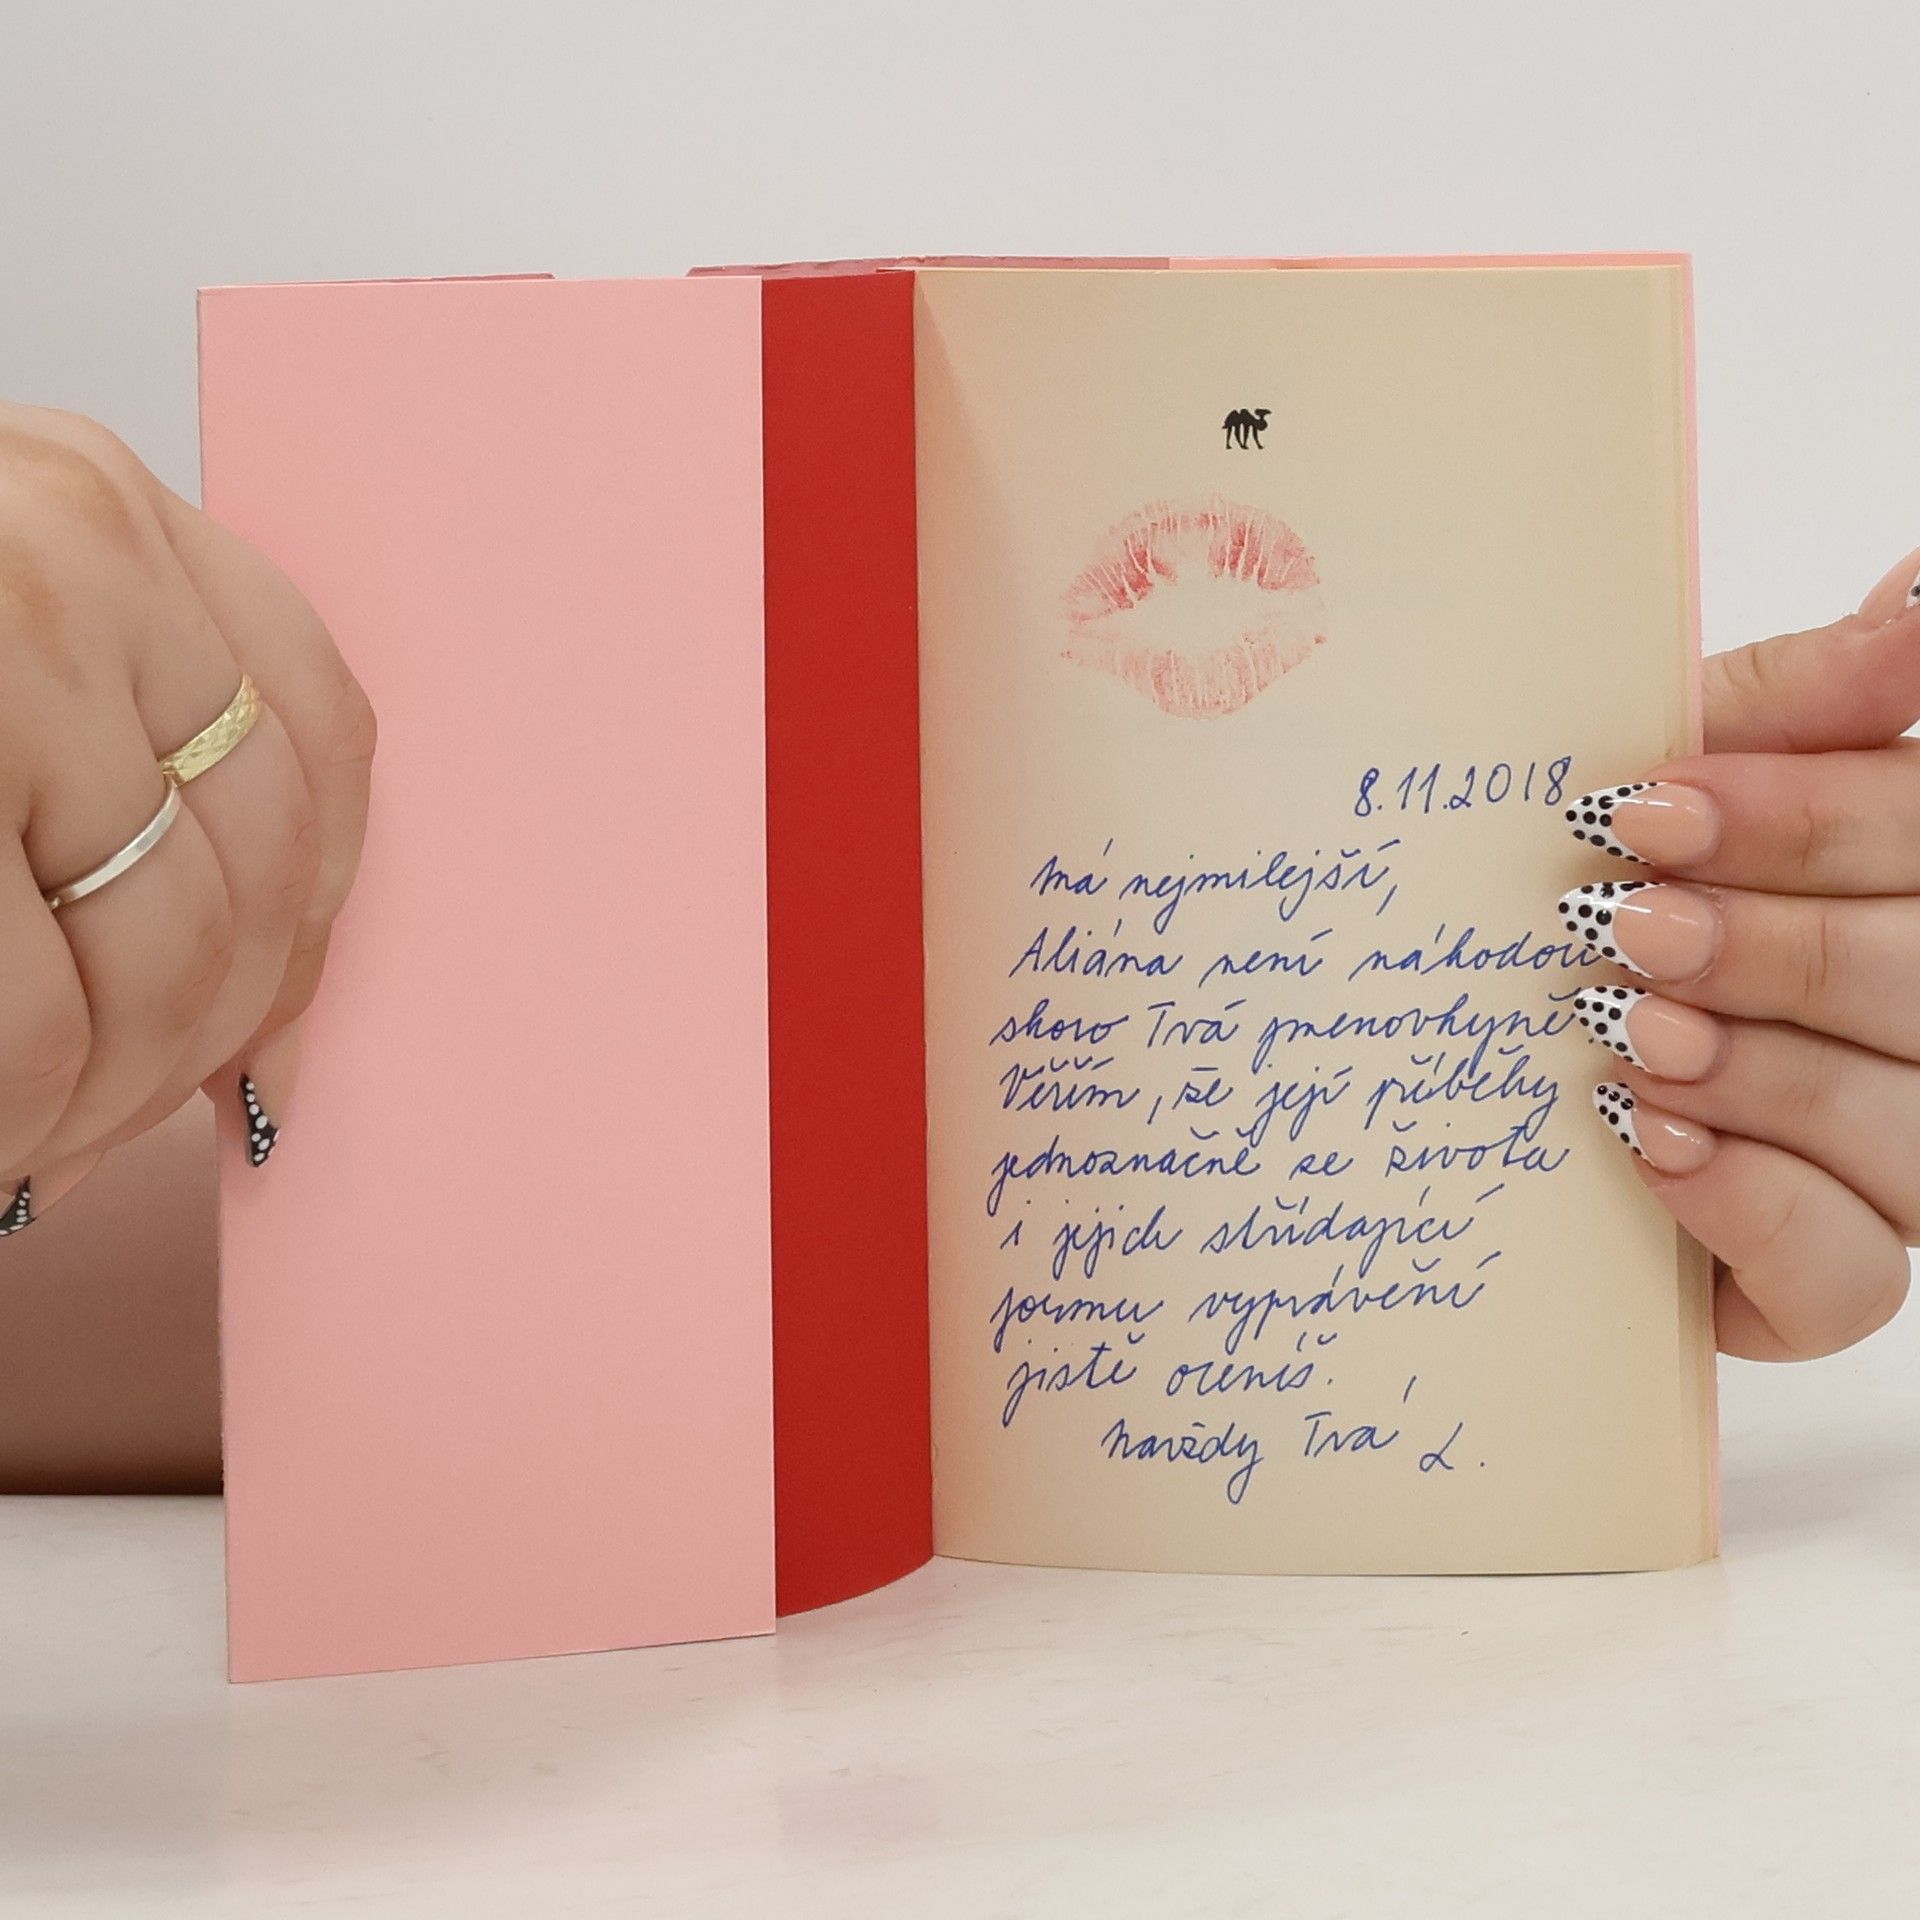 8.11.2018
Má nejmilejší,
Aliána není náhodou
skoro Tvá jmenovkyně.
Věřím, že její příběhy
jednoznačně ze života
i jejich střídající
formu vyprávění
jistě oceníš.
Navždy Tvá L.